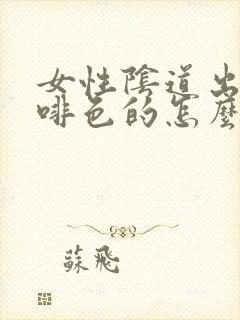 女性陰道出
啡色的怎麼
蘇飛